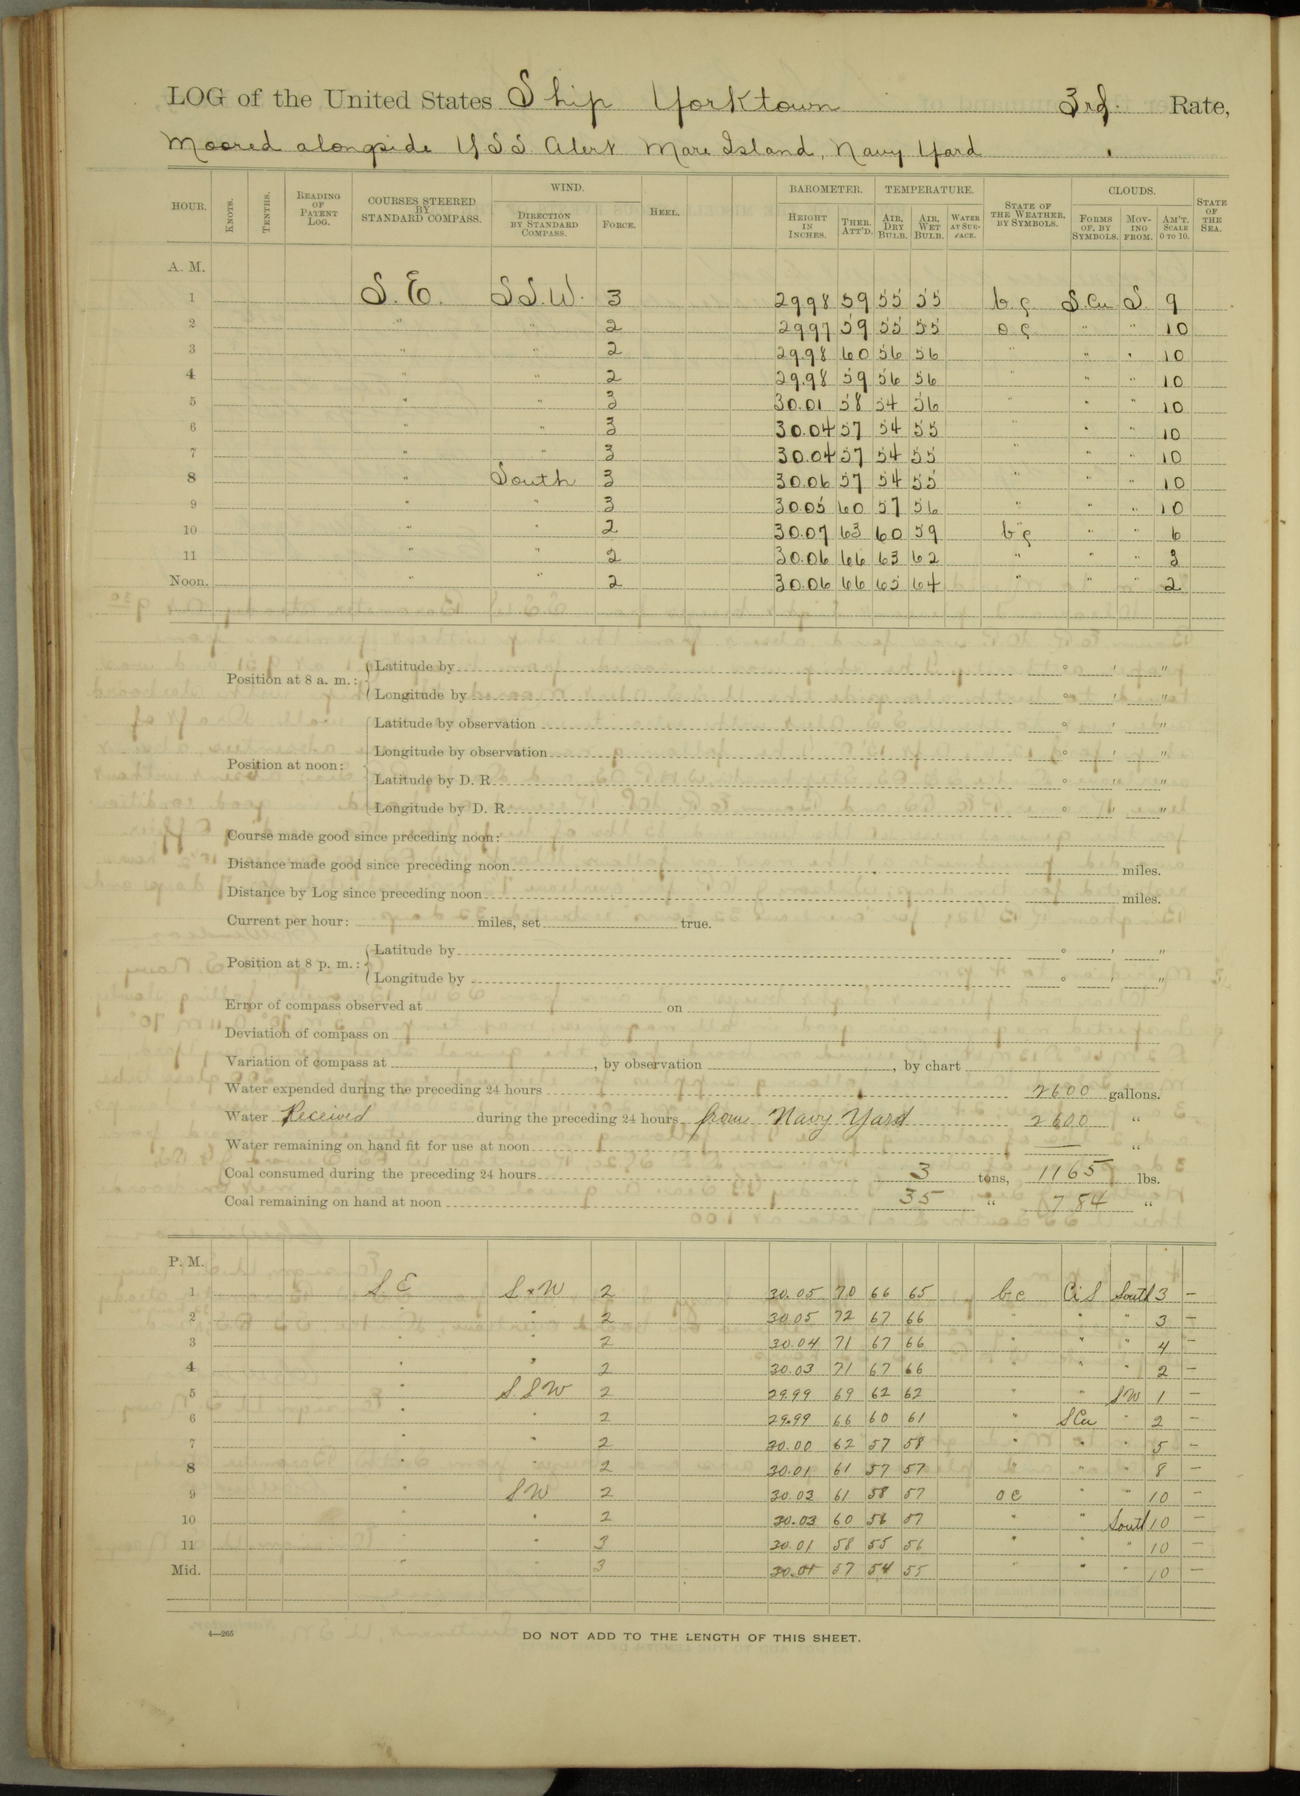 LOG of the United States Ship Yorktown 3rd Rate,
Moored alongside USS Alert Mare Island, Navy Yard
HOUR. KNOTS. TENTHS. READING OF PATENT LOG. COURSES STEERED BY STANDARD COMPASS. WIND. DIRECTION BY STANDARD COMPASS. FORCE. HEEL. BAROMETER. HEIGHT IN INCHES. THER. ATT'D. TEMPERATURE. AIR, DRY BULB. AIR, WET BULB. WATER AT SURFACE. STATE OF THE WEATHER, BY SYMBOLS. CLOUDS. FORMS OF, BY SYMBOLS. MOVING FROM. AM'T. SCALE 0 TO 10. STATE OF THE SEA.
A. M.
1 S.E. S.S.W. 3 29.98 59 55 55 b c S.Cu S. 9
2 " " 2 29.97 59 55 55 o c " " 10
3 " " 2 29.98 60 56 56 " " " 10
4 " " 2 29.98 59 56 56 " " " 10
5 " " 3 30.01 58 54 56 " " " 10
6 " " 3 30.04 57 54 55 " " " 10
7 " " 3 30.04 57 54 55 " " " 10
8 " South 3 30.06 57 54 55 " " " 10
9 " " 3 30.05 60 57 56 " " " 10
10 " " 2 30.07 63 60 59 b c " " 6
11 " " 2 30.06 66 63 62 " " " 3
Noon. " " 2 30.06 66 65 64 " " " 2
Position at 8 a. m.: Latitude by ° ' "
Longitude by ° ' "
Latitude by observation ° ' "
Longitude by observation ° ' "
Position at noon:
Latitude by D. R. ° ' "
Longitude by D. R. ° ' "
Course made good since preceding noon:
Distance made good since preceding noon miles.
Distance by Log since preceding noon miles.
Current per hour: miles, set true.
Position at 8 p. m.: Latitude by ° ' "
Longitude by ° ' "
Error of compass observed at on
Deviation of compass on
Variation of compass at , by observation , by chart
Water expended during the preceding 24 hours 2600 gallons.
Water Received during the preceding 24 hours from Navy Yard 2600 "
Water remaining on hand fit for use at noon — "
Coal consumed during the preceding 24 hours 3 tons, 1165 lbs.
Coal remaining on hand at noon 35 " 784 "
P. M.
1 S.E SxW 2 30.05 70 66 65 b c Ci S South 3 —
2 " " 2 30.05 72 67 66 " " " 3 —
3 " " 2 30.04 71 67 66 " " " 4 —
4 " " 2 30.03 71 67 66 " " " 2 —
5 " S.S.W 2 29.99 69 62 62 " " SW 1 —
6 " " 2 29.99 66 60 61 " SCu " 2 —
7 " " 2 30.00 62 57 58 " " " 5 —
8 " " 2 30.01 61 57 57 " " " 8 —
9 " SW 2 30.03 61 58 57 o c " " 10 —
10 " " 2 30.03 60 56 57 " " South 10 —
11 " " 3 30.01 58 55 56 " " " 10 —
Mid. " " 3 30.01 57 54 55 " " " 10 —
4—265
DO NOT ADD TO THE LENGTH OF THIS SHEET.